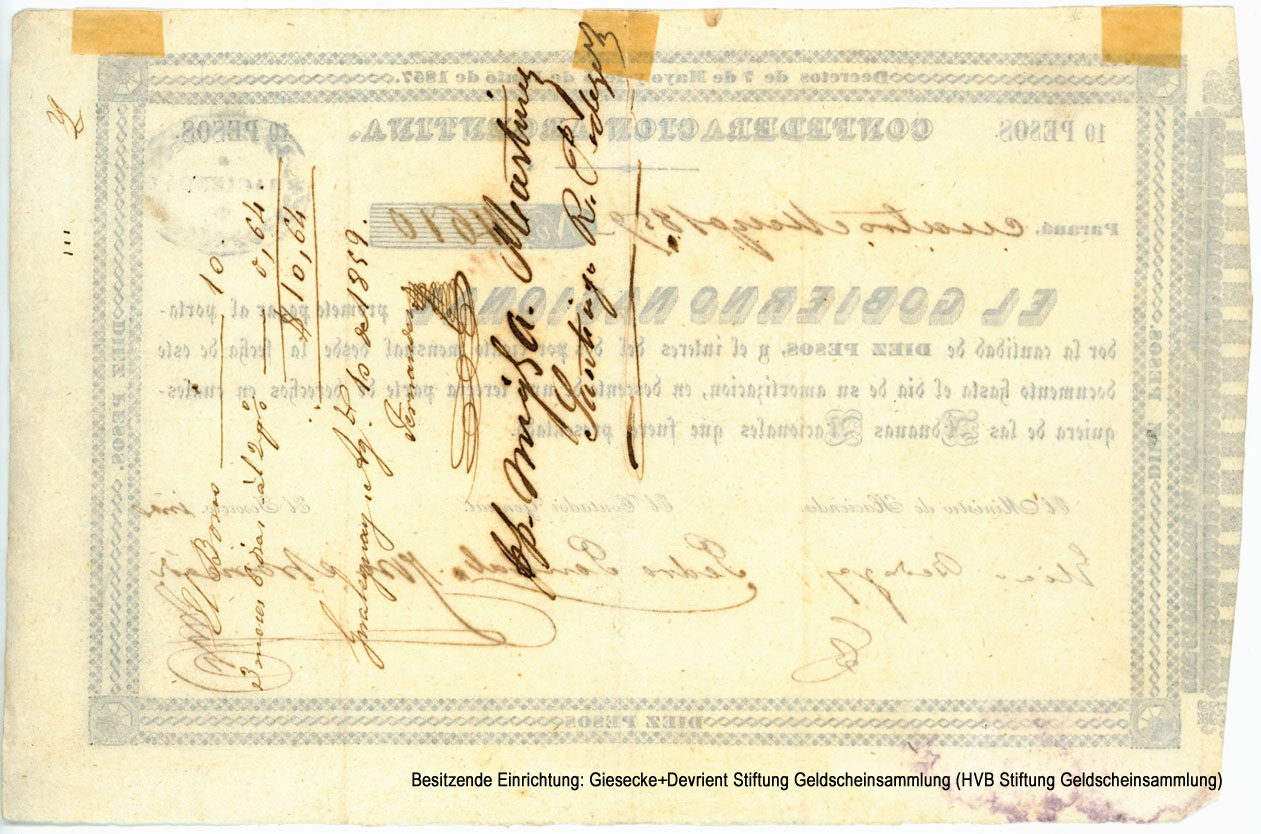 Decretos de 7 de Mayo de Junio de 1857.
10 PESOS.
CONFEDERACION ARGENTINA.
10 PESOS.
HACIENDA
Paraná, cuatro Mayo 1859
4610
EL GOBIERNO NACIONAL, promete pagar al porta-
dor la cantidad de DIEZ PESOS, y el interes del dos por ciento mensual desde la fecha de este
documento hasta el dia de su amortizacion, en descuento de una tercera parte de derechos en cuales-
quiera de las Aduanas Nacionales que fuere presentado.
El Ministro de Hacienda.
El Contador General.
El Tesorero.
Elias Bedoya
Pedro Pondal
DIEZ PESOS.
DIEZ PESOS.
DIEZ PESOS
El Bono 10.
3 meses 6 dias al 2 p% 0,64
$ 10,64
Gualeguay Ag. 10 de 1859.
Fernandez
pp. Mig. a. Martinez
Santiago R.
Besitzende Einrichtung: Giesecke+Devrient Stiftung Geldscheinsammlung (HVB Stiftung Geldscheinsammlung)